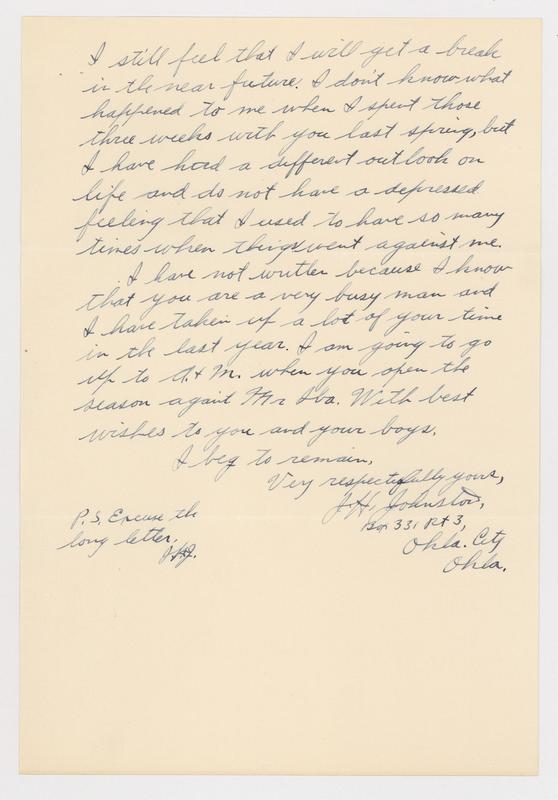 I still feel that I will get a break
in the near future. I don't know what
happened to me when I spent those
three weeks with you last spring, but
I have had a different outlook on
life and do not have a depressed
feeling that I used to have so many
times when things went against me.
I have not written because I know
that you are a very busy man and
I have taken up a lot of your time
in the last year. I am going to go
up to A. & M. when you open the
season against Mr Iba. With best
wishes to you and your boys.
I beg to remain,
Very respectfully yours,
J. H. Johnston,
Box 331 Rt 3,
Okla. City
Okla.
P.S. Excuse the
long letter.
JHJ.